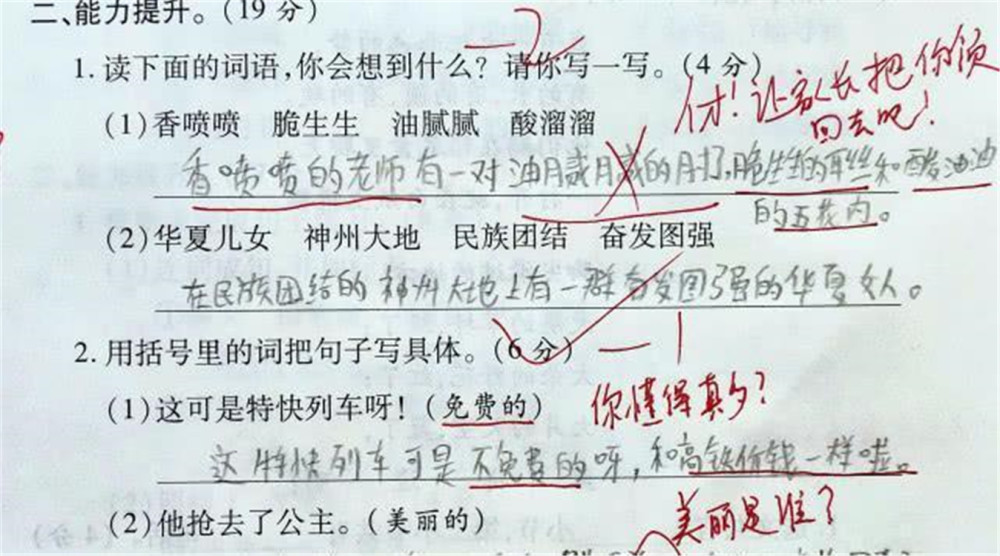 二、能力提升。(19 分)
-2
1. 读下面的词语,你会想到什么? 请你写一写。(4 分)
(1)香喷喷 脆生生 油腻腻 酸溜溜
讨! 让家长把你领
回去吧!
香喷喷的老师有一对油腻腻的肘子,脆生生的耳丝和酸油油
的五花肉。
(2)华夏儿女 神州大地 民族团结 奋发图强
在民族团结的神州大地上有一群奋发图强的华夏女人。
2. 用括号里的词把句子写具体。(6 分) -1
(1)这可是特快列车呀! (免费的)
你懂得真多?
这特快列车可是不免费的呀,和高铁价钱一样啦。
(2)他抢去了公主。(美丽的)
美丽是谁?